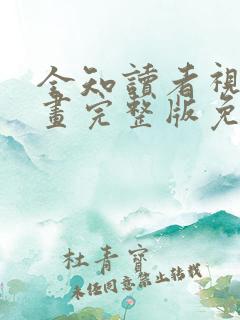 全知讀者視
畫完整版免
杜青寶
未经同意禁止转载